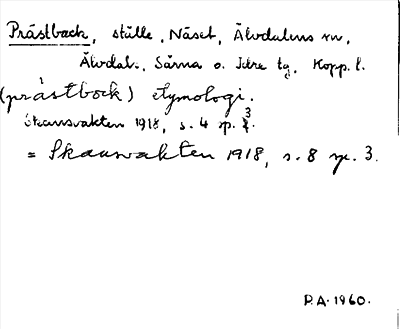 Prästback, ställe, Näset, Älvdalens sn,
Älvdal., Särna o. Idre tg. Kopp. l.
(prästbock) etymologi.
Skansvakten 1918, s. 4 sp. 3.
= Skansvakten 1918, s. 8 sp. 3.
P.A. 1960.